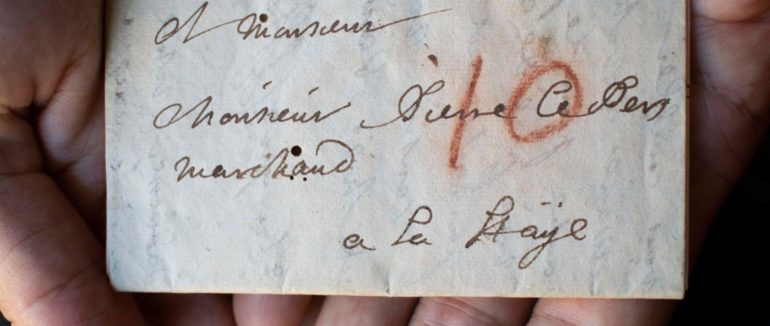 A Monsieur
Monsieur Pierre Le Pers 10
marchand
a La Haÿe